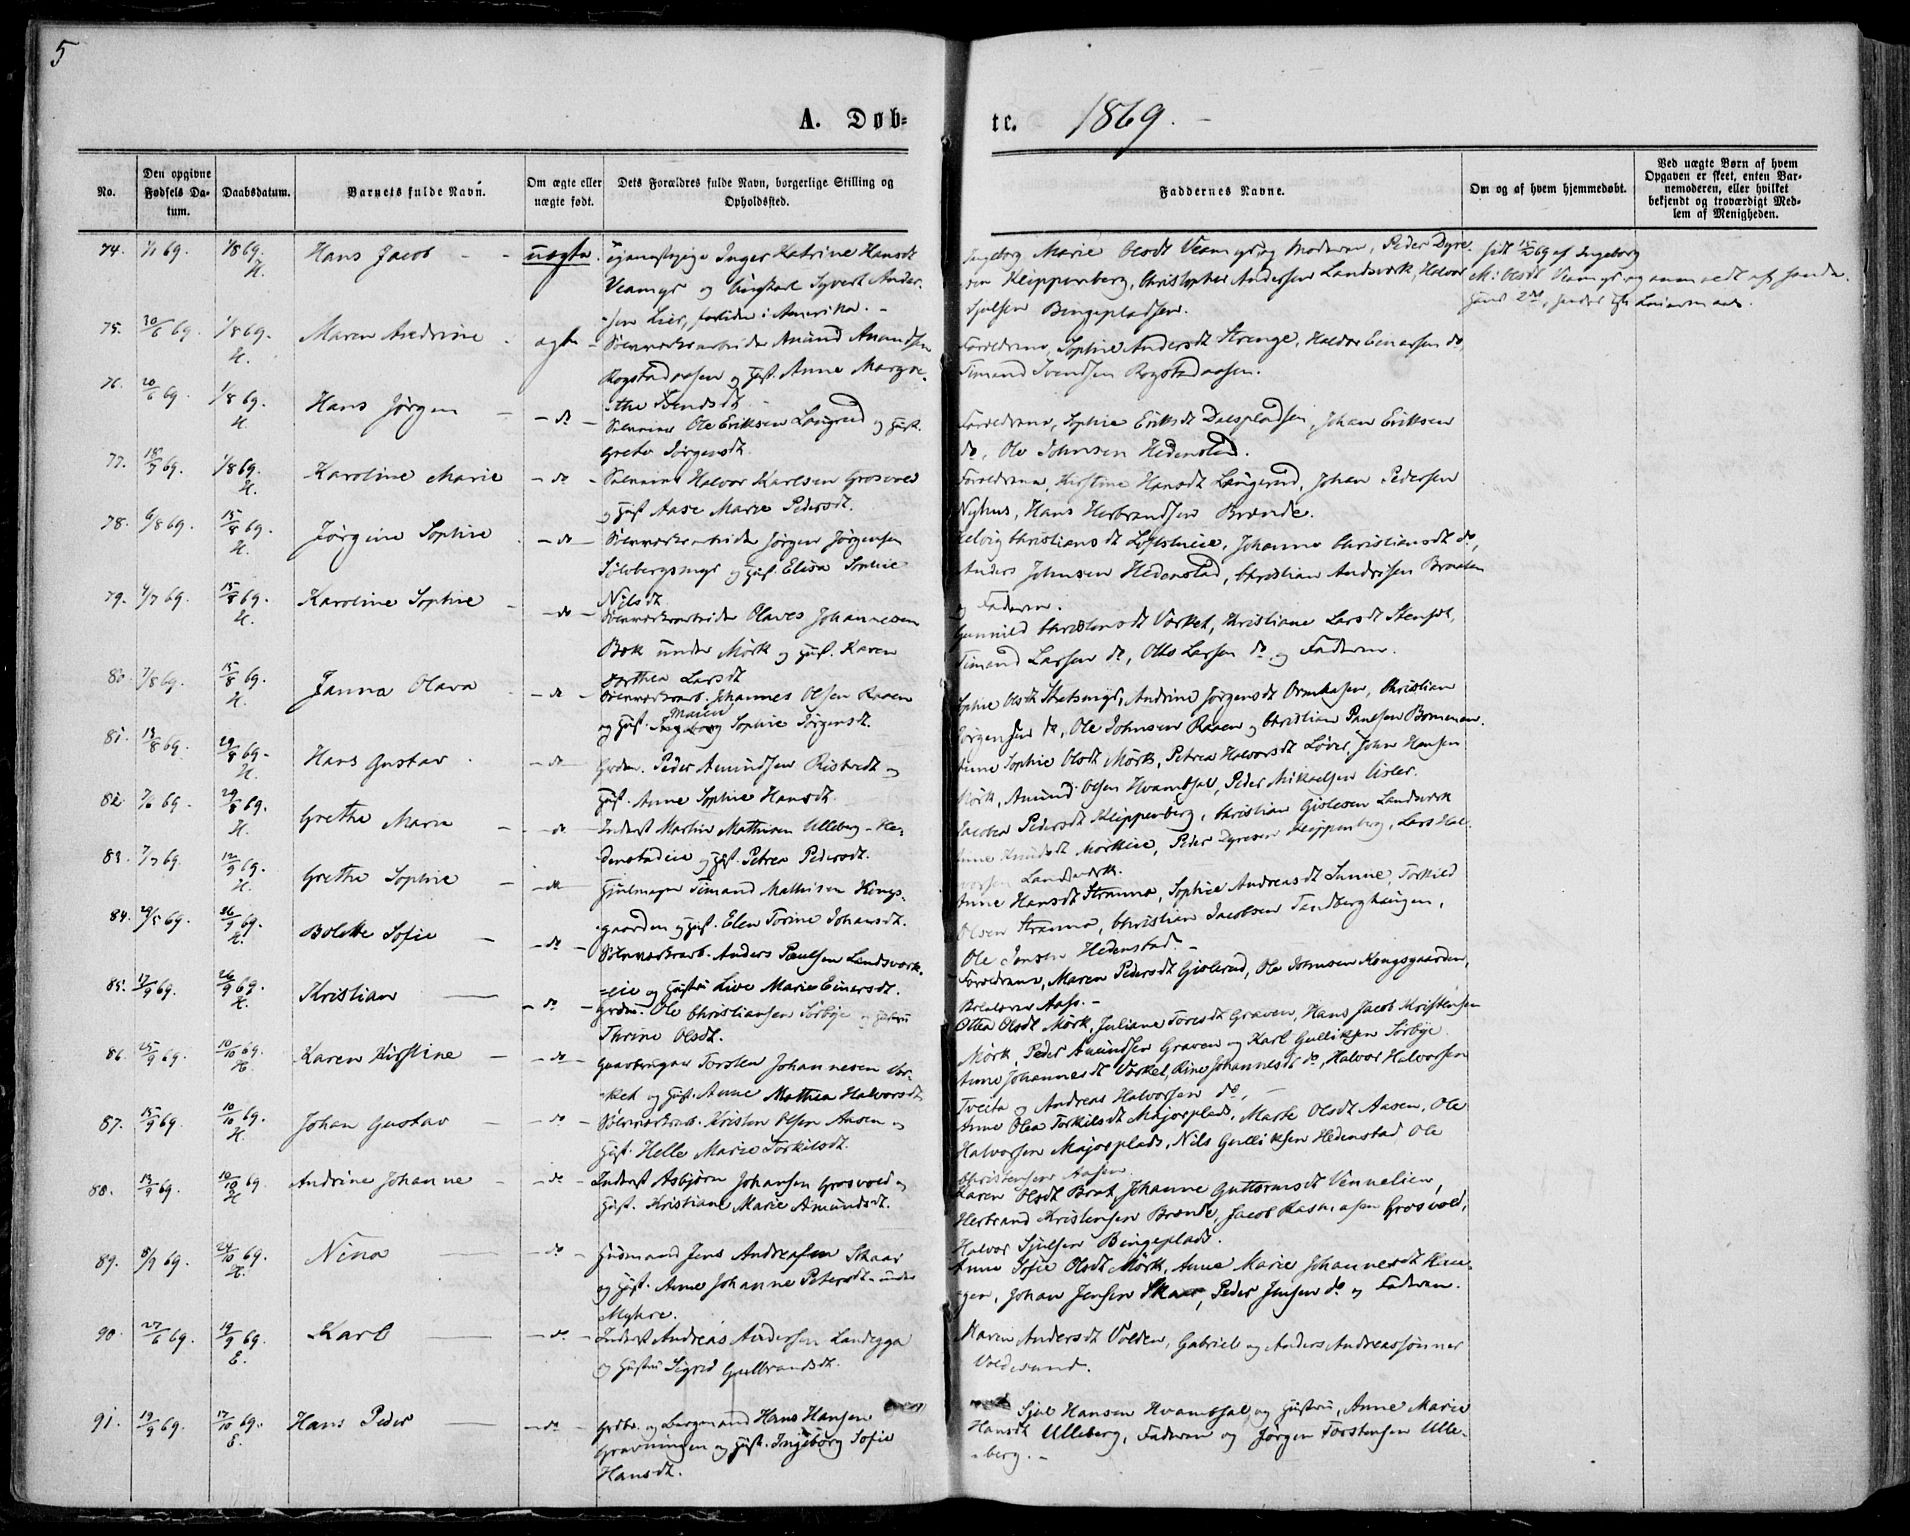 5
A. Døb-
te. 1869.
No.
Den opgivne Fødsels Da-tum.
Daabsdatum.
Barnets fulde Navn.
Om ægte eller uægte født.
Dets Forældres fulde Navn, borgerlige Stilling og Opholdssted.
Faddernes Navne.
Om og af hvem hjemmedøbt.
Ved uægte Børn af hvem Opgaven er skeet, enten Bar-nemoderen, eller hvilket bekjendt og troværdigt Med-lem af Menigheden.
74. 1/8 69. H. Hans Jacob uægte. Inger Katrine Hansdt
og Ungkarl Syvert Ander-
sen Lier, i Amerika.
Ingeborg Marie Olsdt og Moderen, Peder Dyre-
sen Klippenberg, Christopher Andersen Landsverk, Halvor
Sjulsen Bingepladsen.
69 af Ingeborg
M. Olsdt
75. 30/6 69. 1/8 69. H. Maren Andrine ægte Sølvverksarbeider Amund Amundsen
Rogstadaasen og Hust. Anne Margre-
the Svendsdt.
Forældrene, Sophie Andersdt Strenge, Halvor Einarsen do,
Simand Svendsen Rogstadaasen.
76. 20/6 69. 1/8 69. H. Hans Jørgen do Ole Eriksen Langrud og Hust.
Grete Jørgensdt.
Forældrene, Sophie Eriksdt Dalspladsen, Johan Eriksen
do, Ole Johnsen Hedenstad.
77. 18/7 69. 1/8 69. H. Karoline Marie do Halvor Karlsen Grosvold
og Hust Aase Marie Pedersdt.
Forældrene, Kirstine Hansdt Langerud, Johan Pedersen
Nyhus, Hans Herbrandsen Brænde.
78. 6/8 69. 15/8 69. H. Jørgine Sophie do Sølvverksarbeider Jørgen Jørgensen
Sølvbergsmyr og Hust. Elisa Sophie
Nilsdt
Helvig Christiansdt Loftstueie, Johanne Christiansdt do,
Anders Johnsen Hedenstad, Christian Andersen Braaten
og Faderen.
79. 4/7 69. 15/8 69. H. Karoline Sophie do Sølvverksarbeider Olaves Johannessen
Bæk under Mørk og Hust. Karen
Dorthea Larsdt
Gunnild Christensdt Værket, Christiane Larsdt
Simand Larsen do, Otto Larsen do og Faderen.
80. 7/8 69. 15/8 69. H. Janna Olava do Sølvverksarb. Johannes Olsen Raaen
og Hust. Maren Sophie Jørgensdt.
Sophie Olsdt Andrine Jørgensdt Ormhusen, Christian
Jørgensen do, Ole Johnsen Raaen og Christian Paulsen
81. 13/8 69. 29/8 69. H. Hans Gustav do Grdm. Peder Amundsen Ristvedt og
Hust. Anne Sophie Hansdt.
Anne Sophie Olsdt Mørk, Petrea Halvorsdt Løver, John Hansen
Mørk, Amund Olsen Hvambsal, Peder Mikaelsen Aisler.
82. 7/6 69. 29/8 69. H. Grethe Marie do Inderst Martin Mathisen Ulleberg - He-
denstadeie og Hust. Petrea Pedersdt.
Jacobea Pedersdt Klippenberg, Christian Gislesen Landsverk
Anne Knudsdt Mørkeie, Peder Dyresen Klippenberg, Lars Hal-
vorsen Landsverk.
83. 7/7 69. 12/9 69. H. Grethe Sophie do Hjulmager Simand Mathisen Kongs-
gaarden og Hust. Elen Torine Johansdt.
Anne Hansdt Stranna, Sophie Andreasdt Sunne, Torkild
Olsen Stranna, Christian Jacobsen Tandberghaugen,
Ole Jensen Hedenstad.
84. 29/5 69. 26/9 69. H. Bolette Sofie do Sølvverksarb. Anders Paulsen Landsverk-
eie og Hustru Live Marie Einersdt.
Forældrene, Maren Pedersdt Gislerud, Ole Johnsen Kongsgaarden,
Aass.
85. 17/9 69. 26/9 69. H. Kristian do Grdm. Ole Christiansen Sørbøe og Hustru
Thrine Olsdt.
Otta Olsdt Mørk, Juliane Toresdt Graven, Hans Jacob Kristensen
Mørk, Peder Amundsen Graven og Karl Gulliksen Sørbøe.
86. 25/9 69. 10/10 69. H. Karen Kirstine do Gaardbruger Torsten Johannesen Vær-
ket og Hust. Anne Mathea Halvorsdt
Anne Johannesdt Værket, Rine Johannesdt do, Halvor Halvorsen
Tveita og Andreas Halvorsen do.
87. 15/9 69. 10/10 69. H. Johan Gustav do Sølvverksarb. Kristen Olsen Aasen og
Hust. Helle Marie Torkilsdt.
Anne Olea Torkilsdt Majorplads, Marte Olsdt Aasen, Ole
Halvorsen Majorplads, Nils Gulliksen Hedenstad Ole
Christensen Aasen.
88. 13/9 69. 10/10 69. H. Andrine Johanne do Inderst Asbjørn Johansen Grosvold og
Hust. Kristiane Marie Amundsdt.
Karen Olsdt Bræt, Johanne Guttormsdt Vennelien,
Herbrand Kristensen Brænde, Jacob Rasmusen Grosvold,
Halvor Sjulsen Bingeplads.
89. 8/9 69. 24/10 69. H. Nina do Husmand Jens Andreasen Skaar
og Hust. Anne Johanne Petersdt under
Myhre.
Anne Sofie Olsdt Mørk, Anne Marie Johannesdt Hau-
gen, Johan Jensen Skaar, Peder Jensen do og Faderen.
90. 27/6 69. 19/9 69. E. Karl do Inderst Andreas Andersen Landegga
og Hustru Sigrid Gulbrandsdt.
Maren Andersdt Volden, Gabriel og Anders Andreassønner
Voldesund.
91. 19/9 69. 17/10 69. E. Hans Peder do Grdbr. og Bergmand Hans Hansen
Gravningen og Hust. Ingeborg Sofie
Hansdt.
Sjul Hansen Hvambsal og Hustru, Anne Marie
Hansdt Ulleberg, Faderen og Jørgen Torstensen Ulle-
berg.